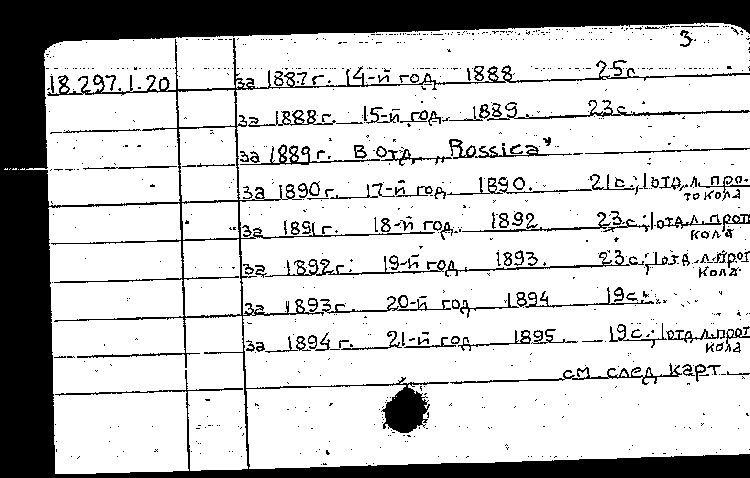 3
18.297.1.20 за 1887г. 14-й год 1888 25с.
за 1888г. 15-й год. 1889. 23с.
за 1889г. В отд. „Rossica"
за 1890г. 17-й год 1890. 21с.; 1отд.л. про-
токола
за 1891г. 18-й год. 1892. 23с.; 1отд.л. прот
кола
за 1892г. 19-й год. 1893. 23с.; 1отд.л.прот
кола
за 1893г. 20-й год 1894 19с.
за 1894г. 21-й год 1895. 19с.; 1отд.л.прот
кола
см след. карт.